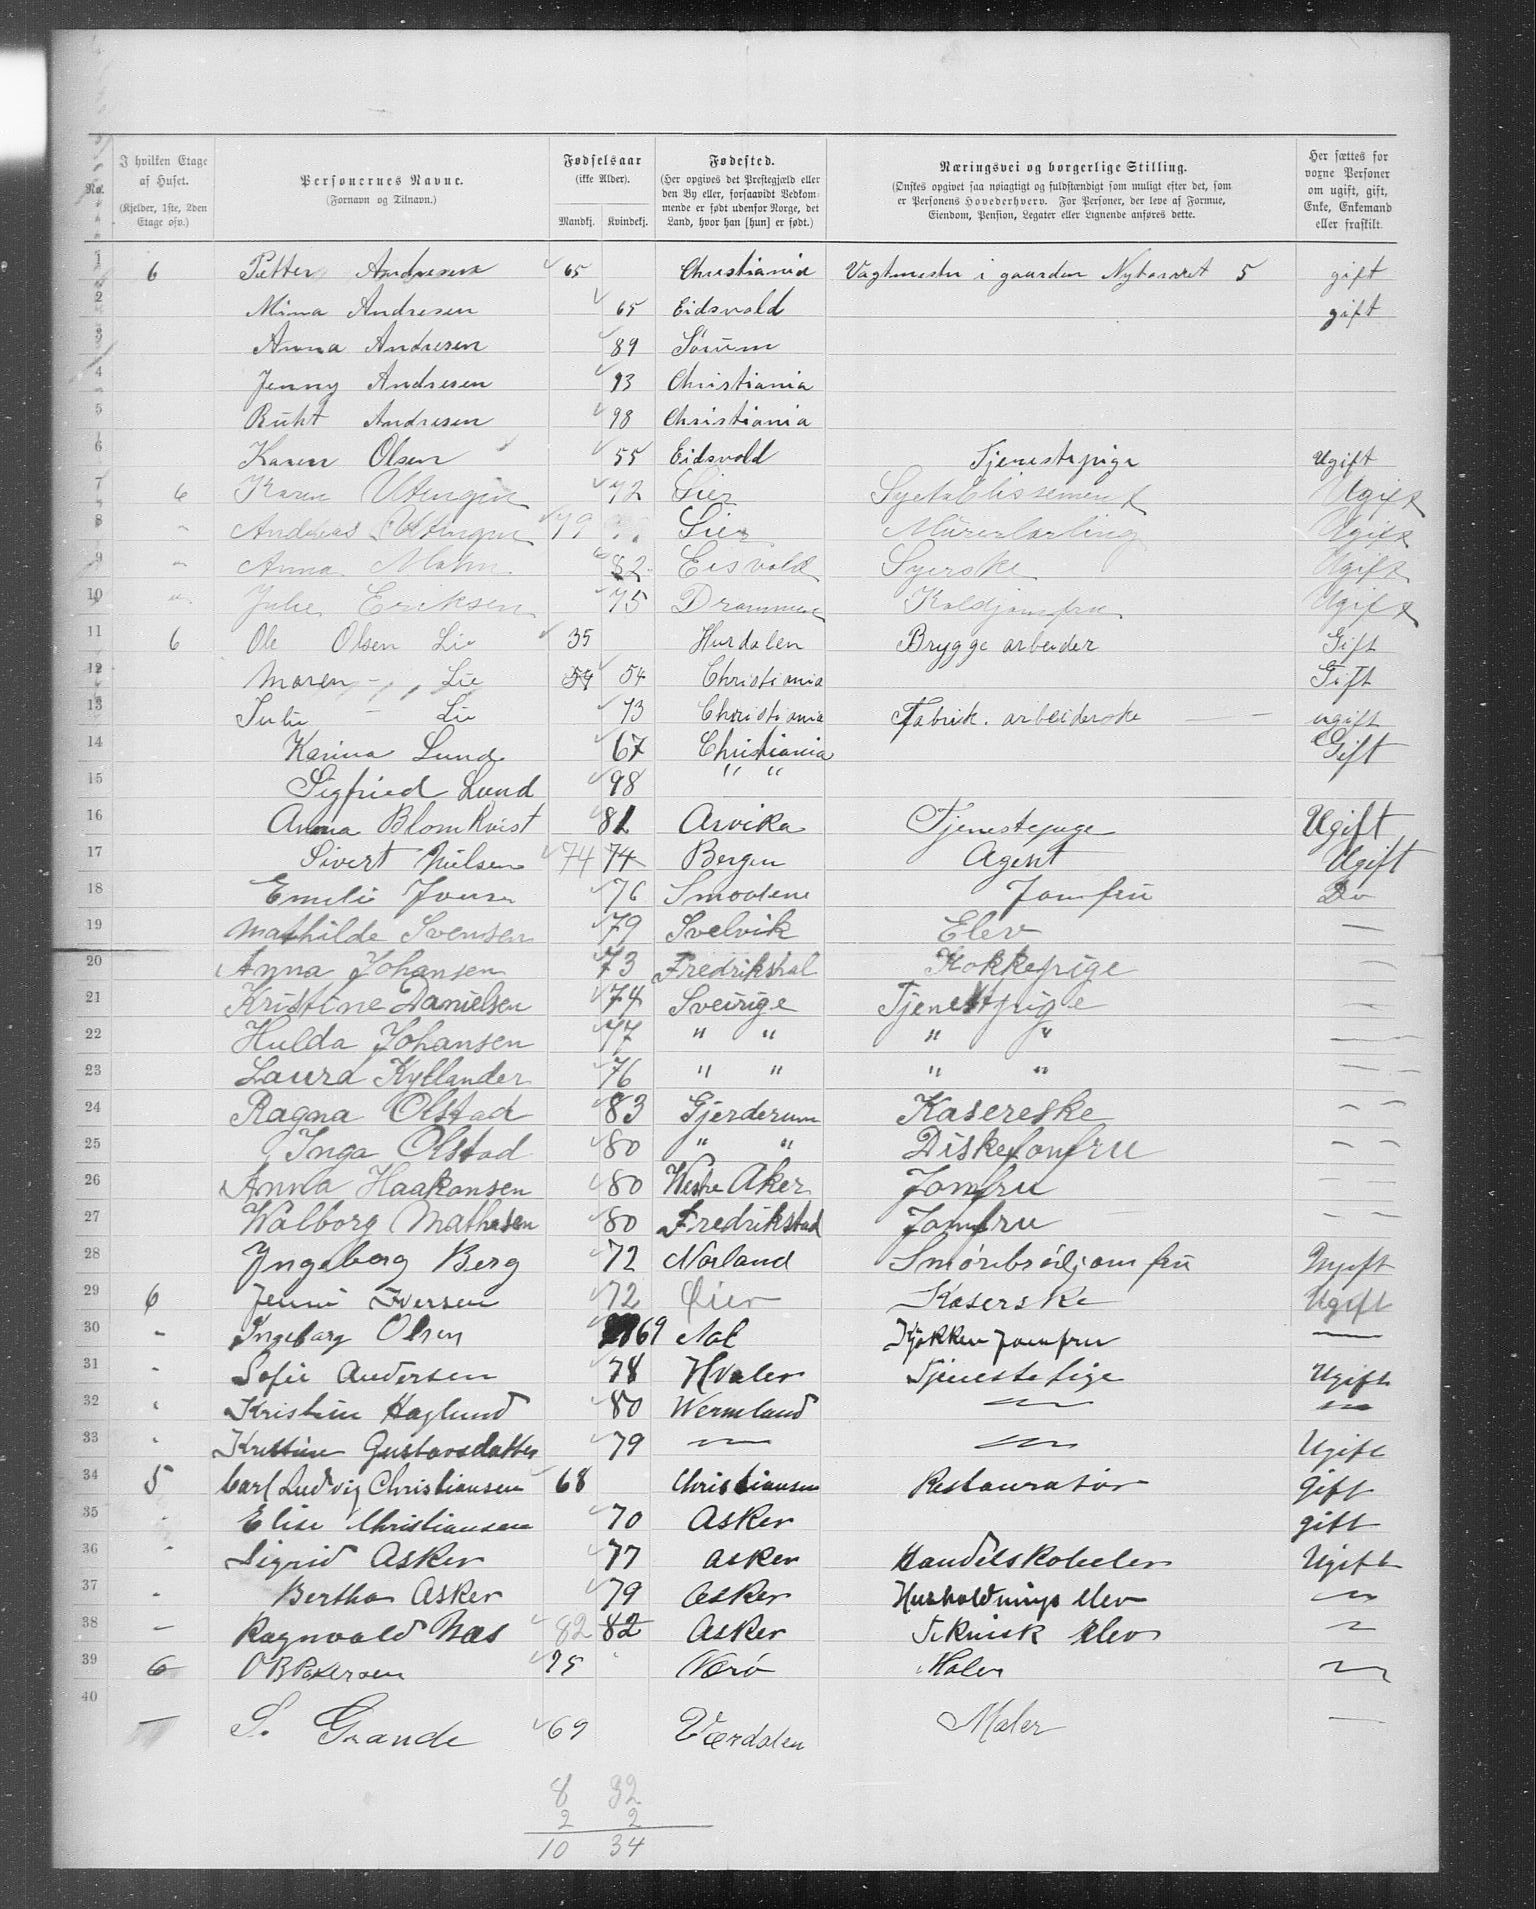 No.
I hvilken Etage af Huset. (Kjelder, 1ste, 2den Etage osv.)
Personernes Navne. (Fornavn og Tilnavn.)
Fødselsaar (ikke Alder). Mandkj. Kvindekj.
Fødested. (Her opgives det Prestegjæld eller den By eller, forsaavidt Vedkommende er født udenfor Norge, det Land, hvor han [hun] er født.)
Næringsvei og borgerlige Stilling. (Ønskes opgivet saa nøiagtigt og fuldstændigt som muligt efter det, som er Personens Hovederhverv. For Personer, der leve af Formue, Eiendom, Pension, Legater eller Lignende anføres dette.)
Her sættes for voxne Personer om ugift, gift, Enke, Enkemand eller fraskilt.
1 6 Petter Andresen 65 Christiania Vagtmester i gaarden Nytorvet 5 gift
2 Mina Andresen 65 Eidsvold gift
3 Anna Andresen 89 Sørum
4 Jenny Andresen 93 Christiania
5 Ruht Andresen 98 Christiania
6 Karen Olsen 55 Eidsvold Tjenestepige Ugift
7 6 Karen 72 Lier Syetablissement Ugift
8 " Andreas 79 Lier Murerlærling Ugift
9 " Anna Mohn 82 Eisvold Syerske Ugift
10 " Julie Eriksen 75 Drammen Koldjomfru Ugift
11 6 Ole Olsen Lie 35 Hurdalen Brygge arbeider Gift
12 Maren - Lie 54 54 Christiania Gift
13 Julie - Lie 73 Christiania Fabrik. arbeiderske ugift
14 Karina Lund 67 Christiania Gift
15 Sigfried Lund 98 " "
16 Anna Blomkvist 81 Arvika Tjenestepige Ugift
17 Sivert Nielsen 74 74 Bergen Agent Ugift
18 Emeli 76 Smaalene Jomfru Do
19 Mathilde Svensen 79 Svelvik Elev —
20 Anna Johansen 73 Fredrikshal Kokkepige —
21 Kristine Danielsen 74 Sverige Tjenestpige —
22 Hulda Johansen 77 " " " " —
23 Laura Kyllander 76 " " " " —
24 Ragna Olstad 83 Gjerderum Kasereske — —
25 Inga Olstad 80 " " Diskejomfru — —
26 Anna Haakonsen 80 Westre Aker Jomfru — —
27 Walborg Mathesen 80 Fredrikstad Jomfru — —
28 Yngeborg Berg 72 Norland Smörbrödjomfru Ugift
29 6 Jenni Iversen 72 Øier Kaserske Ugift
30 - Ingeborg Olsen 69 Kjøkken jomfru —
31 - Sofie Andersen 78 Hvaler Tjenestepige Ugift
32 " Kristine Haglund 80 Wermland — —
33 " Kristine Gustavsdatter 79 — — Ugift
34 5 Carl Ludvig Christiansen 68 Christiansen Restauratör gift
35 " Elise Christiansen 70 Asker gift
36 " Sigrid Asker 77 Asker Handelskolelev Ugift
37 - Bertha Asker 79 Asker Husholdnings elev —
38 - Ragnvald Næs 82 82 Asker Teknisk elev —
39 6 O B Pedersen 75 Nærö Maler —
40 — S. Grande 69 Værdalen Maler —
8 32
2 2
10 34